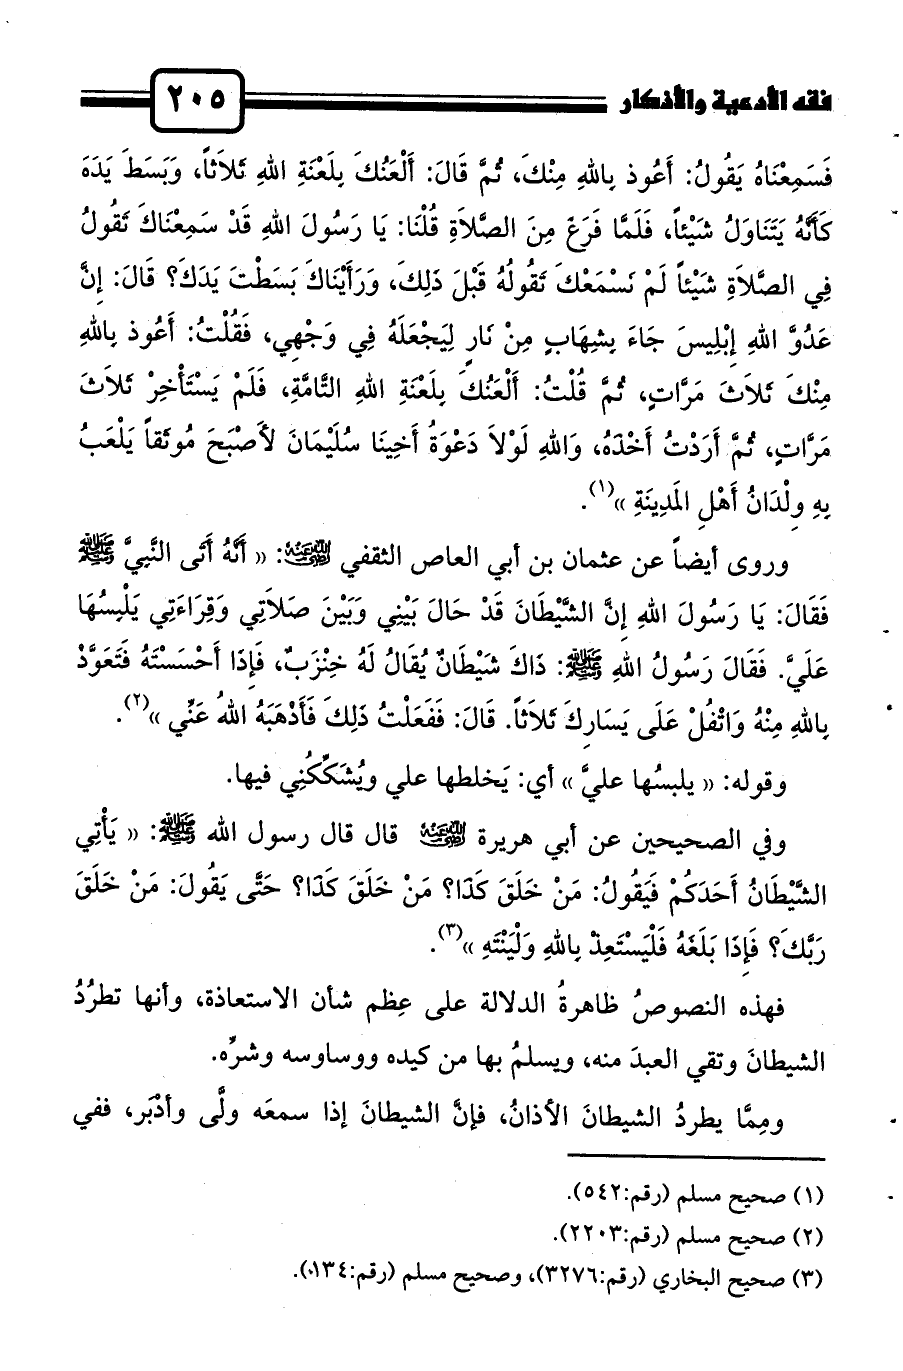 فقه الأدعية والأذكار
٢٠٥
فَسَمِعْنَاهُ يَقُولُ: أَعُوذ بِاللهِ مِنْكَ، ثُمَّ قَالَ: أَلْعَنُكَ بِلَعْنَةِ اللهِ ثَلاَثاً، وَبَسَطَ يَدَهُ
كَأَنَّهُ يَتَنَاوَلُ شَيْئاً، فَلَمَّا فَرَغَ مِنَ الصَّلاَةِ قُلْنَا: يَا رَسُولَ اللهِ قَدْ سَمِعْنَاكَ تَقُولُ
فِي الصَّلاَةِ شَيْئاً لَمْ نَسْمَعْكَ تَقُولُهُ قَبْلَ ذَلِكَ، وَرَأَيْنَاكَ بَسَطْتَ يَدَكَ؟ قَالَ: إِنَّ
عَدُوَّ اللهِ إِبْلِيسَ جَاءَ بِشِهَابٍ مِنْ نَارٍ لِيَجْعَلَهُ فِي وَجْهِي، فَقُلْتُ: أَعُوذ بِاللهِ
مِنْكَ ثَلاَثَ مَرَّاتٍ، ثُمَّ قُلْتُ: أَلْعَنُكَ بِلَعْنَةِ اللهِ التَّامَّةِ، فَلَمْ يَسْتَأْخِرْ ثَلاَثَ
مَرَّاتٍ، ثُمَّ أَرَدْتُ أَخْذَهُ، وَاللهِ لَوْلاَ دَعْوَةُ أَخِينَا سُلَيْمَانَ لأَصْبَحَ مُوثَقاً يَلْعَبُ
بِهِ وِلْدَانُ أَهْلِ المَدِينَةِ »(١).
وروى أيضاً عن عثمان بن أبي العاص الثقفي رضي الله عنه: « أَنَّهُ أَتَى النَّبِيَّ ﷺ
فَقَالَ: يَا رَسُولَ اللهِ إِنَّ الشَّيْطَانَ قَدْ حَالَ بَيْنِي وَبَيْنَ صَلاَتِي وَقِرَاءَتِي يَلْبِسُهَا
عَلَيَّ. فَقَالَ رَسُولُ اللهِ ﷺ: ذَاكَ شَيْطَانٌ يُقَالُ لَهُ خِنْزَبٌ، فَإِذَا أَحْسَسْتَهُ فَتَعَوَّذْ
بِاللهِ مِنْهُ وَاتْفُلْ عَلَى يَسَارِكَ ثَلاَثاً. قَالَ: فَفَعَلْتُ ذَلِكَ فَأَذْهَبَهُ اللهُ عَنِّي »(٢).
وقوله: « يلبسُها عليَّ » أي: يَخلطها علي ويُشَكِّكُنِي فيها.
وفي الصحيحين عن أبي هريرة رضي الله عنه قال قال رسول الله ﷺ: « يَأْتِي
الشَّيْطَانُ أَحَدَكُمْ فَيَقُولُ: مَنْ خَلَقَ كَذَا؟ مَنْ خَلَقَ كَذَا؟ حَتَّى يَقُولَ: مَنْ خَلَقَ
رَبَّكَ؟ فَإِذَا بَلَغَهُ فَلْيَسْتَعِذْ بِاللهِ وَلْيَنْتَهِ »(٣).
فهذه النصوصُ ظاهرةُ الدلالة على عِظم شأن الاستعاذة، وأنها تطرُدُ
الشيطانَ وتقي العبدَ منه، ويسلمُ بها من كيده ووساوسه وشرِّه.
ومِمَّا يطردُ الشيطانَ الأذانُ، فإنَّ الشيطانَ إذا سمعَه ولَّى وأدْبَر، ففي
(١) صحيح مسلم (رقم:٥٤٢).
(٢) صحيح مسلم (رقم:٢٢٠٣).
(٣) صحيح البخاري (رقم:٣٢٧٦)، وصحيح مسلم (رقم:٠١٣٤).